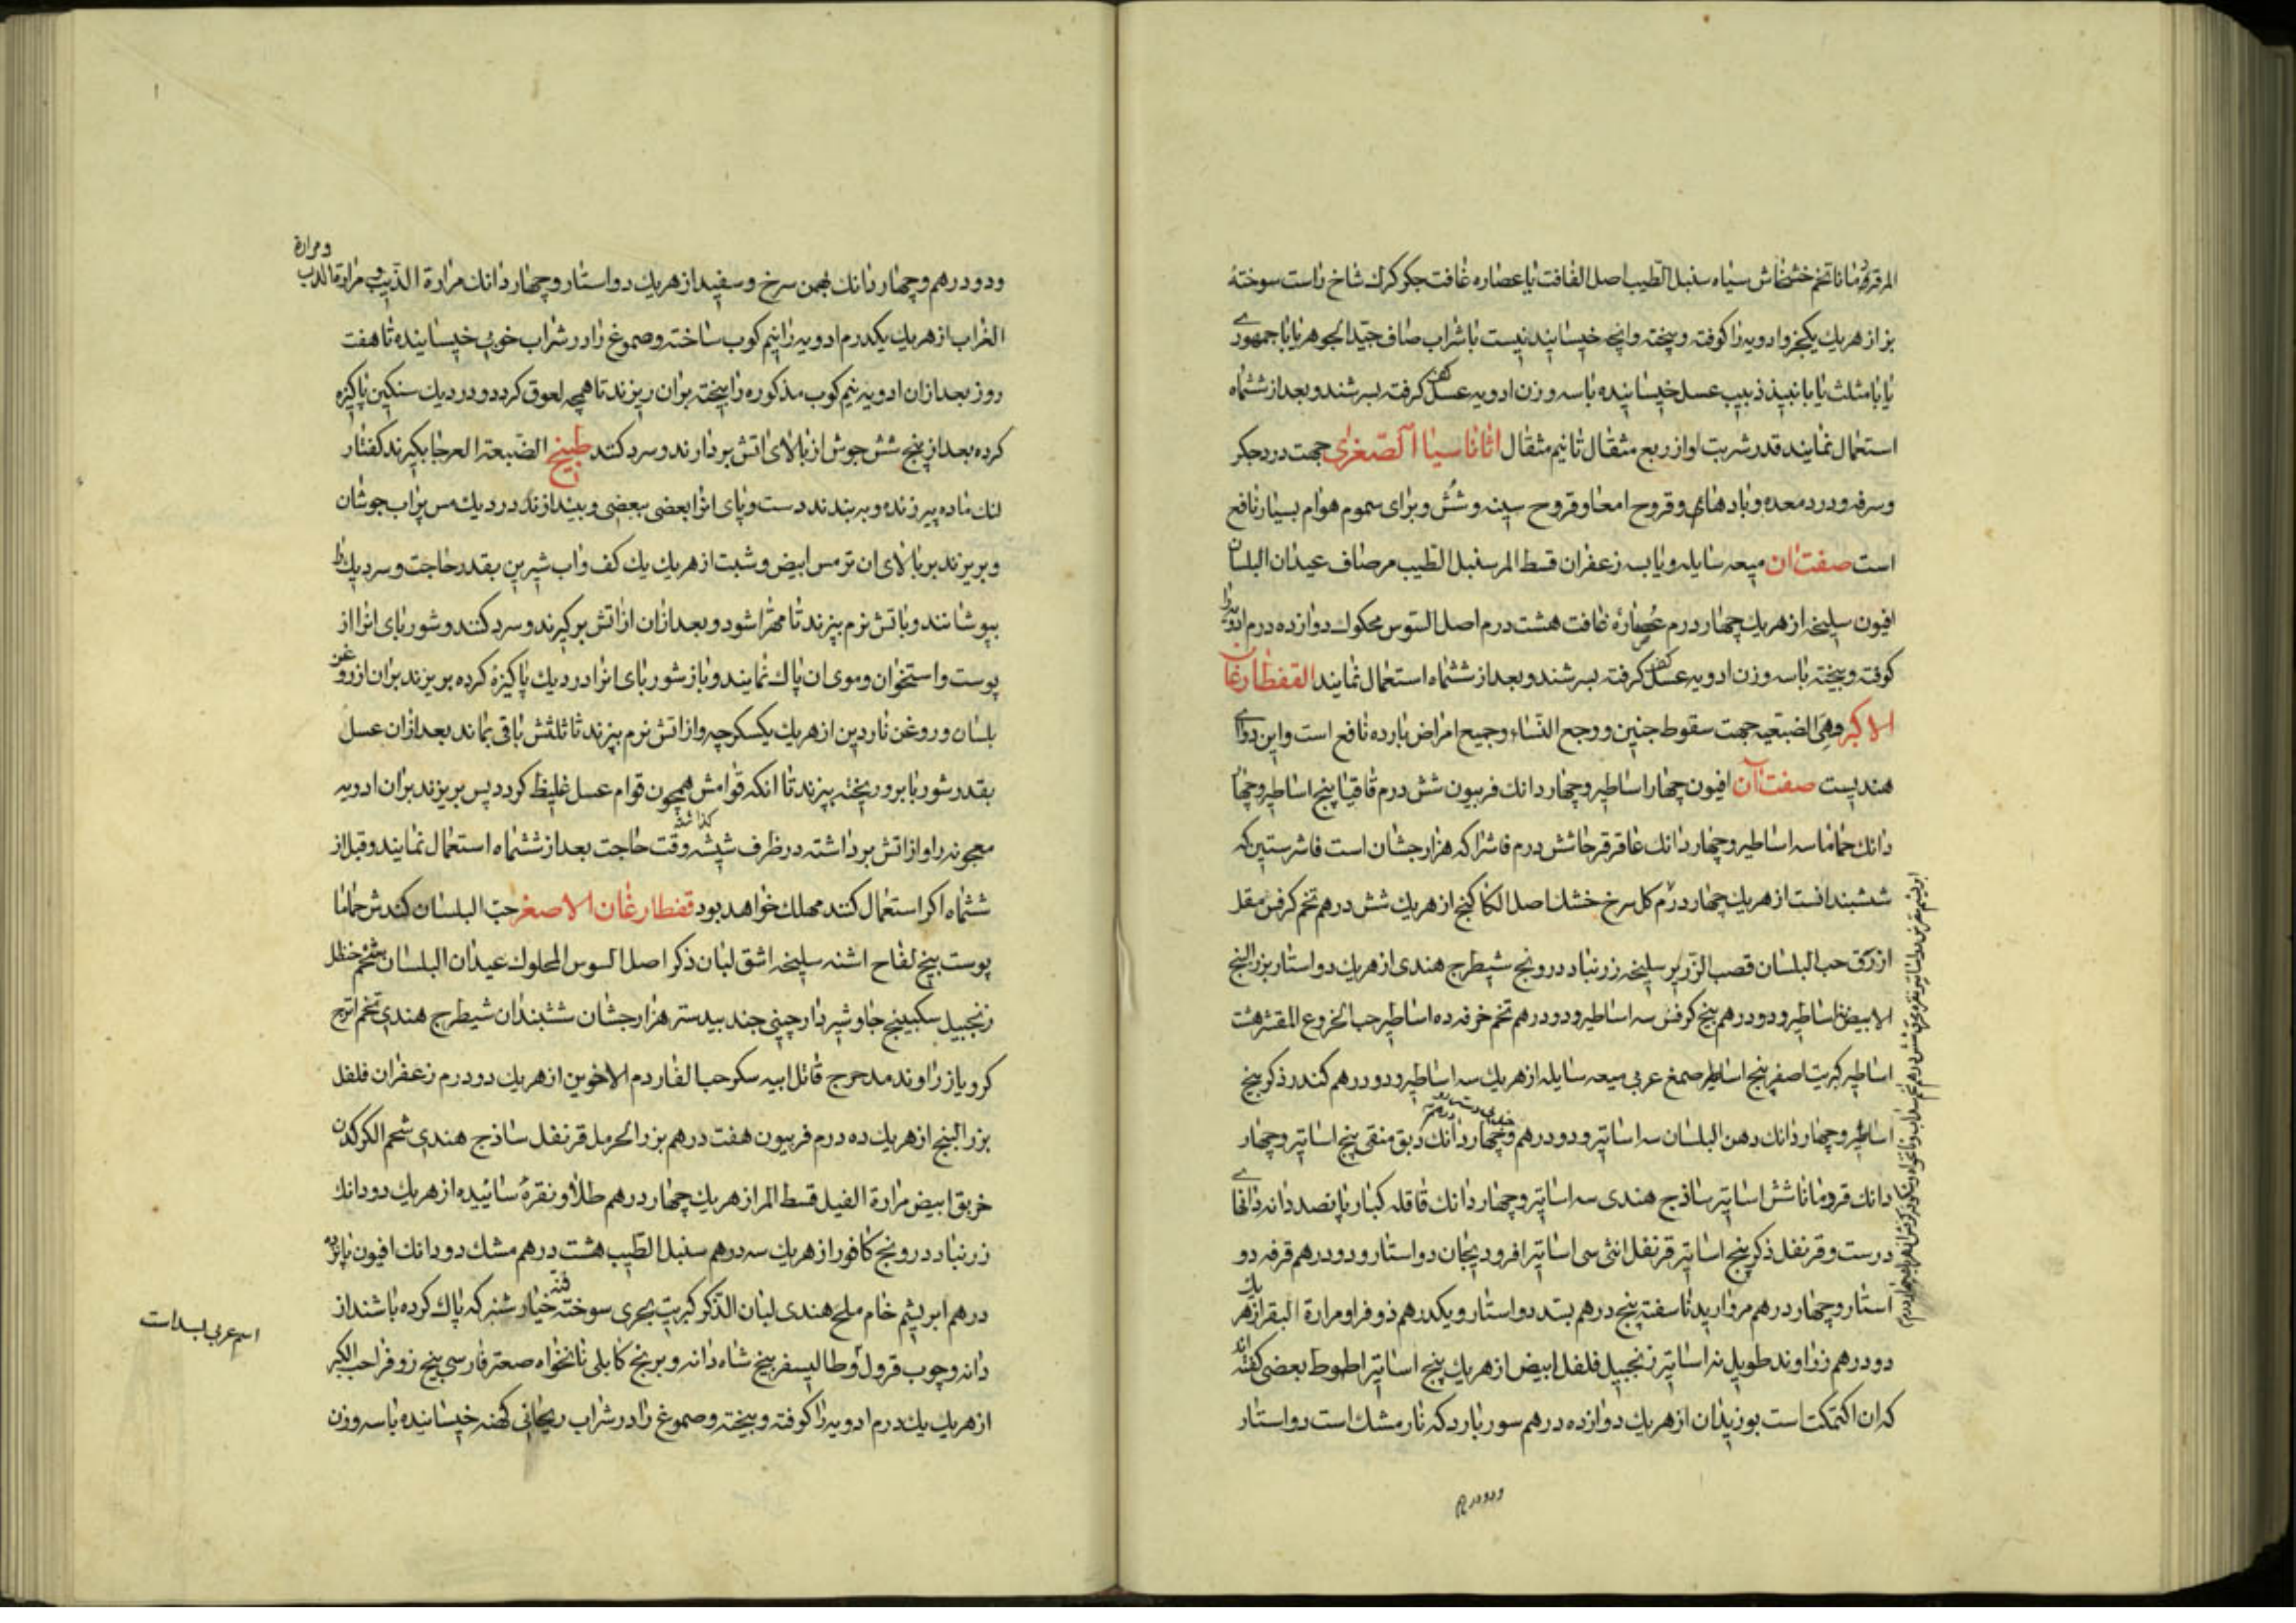 المر قردمانا تخم خشخاش سیاه سنبل الطیب اصل الغافت یا عصاره غافت جکر کرک شاخ راست سوختهٔ
بز از هر یك یکجزو ادویه را کوفته و بیخته وانچه خیسانیدنیست با شراب صاف جید الجوهر یا با جمهوری
یا با مثلث یا با نبیذ زبیب عسل خیسانیده با سه وزن ادویه عسل کف کرفته بسرشند و بعد از ششماه
استعمال نمایند قدر شربت او از ربع مثقال تا نیم مثقال اثاناسیا الصغری جهت درد جکر
وسرفه ودرد معده وبادهای وقروح امعا وقروح سینه وشش وبرای سموم هوام بسیار نافع
است صفت ان میعه سایله ویابسه زعفران قسط المر سنبل الطیب مر صاف عیدان البلسان
افیون سلیخه از هر یك چهار درم عصارهٔ غافت هشت درم اصل السوس محکوك دوازده درم ادویه را
کوفته وبیخته با سه وزن ادویه عسل کف کرفته بسرشند وبعد از ششماه استعمال نمایند القفطارغان
الاکبر وهی الضبعیه جهت سقوط جنین ووجع النساء وجمیع امراض بارده نافع است واین دوای
هندیست صفت آن افیون چهار اساطیر وچهار دانك فربیون شش درم قاقیا پنج اساطیر وچهار
دانك حماما سه اساطیر وچهار دانك عاقرقرحا شش درم فاشرا که هزار جشان است فاشرستین که
ششبندانست از هر یك چهار درم کل سرخ خشك اصل الکاکنج از هر یك شش درهم تخم کرفس مقل
ازرق حب البلسان قصب الزریر سلیخه زرنباد درونج شیطرج هندی از هر یك دو استار بزر البنج
الابیض اساطیر ودو درهم بیخ کرفس سه اساطیر ودو درهم تخم خرفه ده اساطیر حب الخروع المقشر هشت
اساطیر کبریت اصفر پنج اساطیر صمغ عربی میعه سایله از هر یك سه اساطیر ودو درهم کندر ذکر پنج
اساطیر وچهار دانك دهن البلسان سه اساتیر ودو درهم وچهار دانك دبق منقی پنج اساتیر وچهار
دانك قردمانا شش اساتیر ساذج هندی سه اساتیر وچهار دانك قاقله کبار پانصد دانه دانهای
درست وقرنفل ذکر پنج اساتیر قرنفل انثی سی اساتیر افرودیجان دو استار ودو درهم قرفه دو
استار وچهار درهم مروارید ناسفته پنج درهم بسد دو استار ویکدرهم ذوفرا ومرارة البقر از هر یك
دو درهم زراوند طویل نه اساتیر زنجبیل فلفل ابیض از هر یك پنج اساتیر اطوط بعضی کفته اند
که ان اکتمکت است بوزیدان از هر یك دوازده درهم سورباردکه نارمشك است دو استار
ودو درهم
ودو درهم وچهار دانك بهمن سرخ وسفید از هر یك دو استار وچهار دانك مرارة الذیب ومرارة الدب
ومرارة
الغراب از هر یك یکدرم ادویه را نیم کوب ساخته وصموغ را در شراب خوبی خیسانیده تا هفت
روز بعد از ان ادویه نیم کوب مذکوره را بیخته بران ریزند تا همچه لعوق کردد ودر دیك سنکین پاکیزه
کرده بعد از پنج شش جوش از بالای اتش بردارند وسرد کنند طبیخ الضبعة العرجا بکیرند کفتار
لنك ماده پیر زنده وبه بندند دست وپای انرا بعضی ببعضی وبیندازند در دیك مس پر اب جوشان
وبریزند بر بالای ان ترمس ابیض وشبت از هر یك یك کف واب شیرین بقدر حاجت وسر دیك را
بپوشانند وباتش نرم بپزند تا مهرا شود وبعد از ان از اتش برکیرند وسرد کنند وشوربای انرا از
پوست واستخوان وموی ان پاك نمایند وباز شوربای انرا در دیك پاکیزهٔ کرده بریزند بران از روغن
بلسان وروغن ناردین از هر یك یکسکرجه واز اتش نرم بپزند تا ثلثش باقی بماند بعد از ان عسل
بقدر شوربا برو ریخته بپزند تا انکه قوامش همچون قوام عسل غلیظ کردد پس بریزند بران ادویه
معجونه را واز اتش برداشته در ظرف شیشه کذاشته وقت حاجت بعد از ششماه استعمال نمایند وقبل از
ششماه اکر استعمال کنند مهلك خواهد بود قفطارغان الاصغر حب البلسان کندش حماما
پوست بیخ لفاح اشنه سلیخه اشق لبان ذکر اصل السوس المحلوك عیدان البلسان شحم حنظل
زنجبیل سکبینج جاوشیر دارچینی جند بیدستر هزار جشان ششبندان شیطرج هندی تخم اترج
کرویا زراوند مدحرج قاتل ابیه سکر حب الغار دم الاخوین از هر یك دو درم زعفران فلفل
بزر البنج از هر یك ده درم فربیون هفت درهم بزر الحرمل قرنفل ساذج هندی شحم الکرکدن
خربق ابیض مرارة الفیل قسط المر از هر یك چهار درهم طلا ونقرهٔ سائیده از هر یك دو دانك
زرنباد درونج کافور از هر یك سه درهم سنبل الطیب هشت درهم مشك دو دانك افیون پانزده
درهم ابریشم خام ملح هندی لبان الذکر کبریت بحری سوخته خیارشنبر که پاك کرده باشند از
دانه وچوب قرول وطالیسفر بیخ شاه دانه وبرنج کابلی نانخواه صعتر فارسی بیخ زوفرا حب الکبر
از هر یك یك درم ادویه را کوفته وبیخته وصموغ را در شراب ریحانی کهنه خیسانیده با سه وزن
اسم عربی بسد است